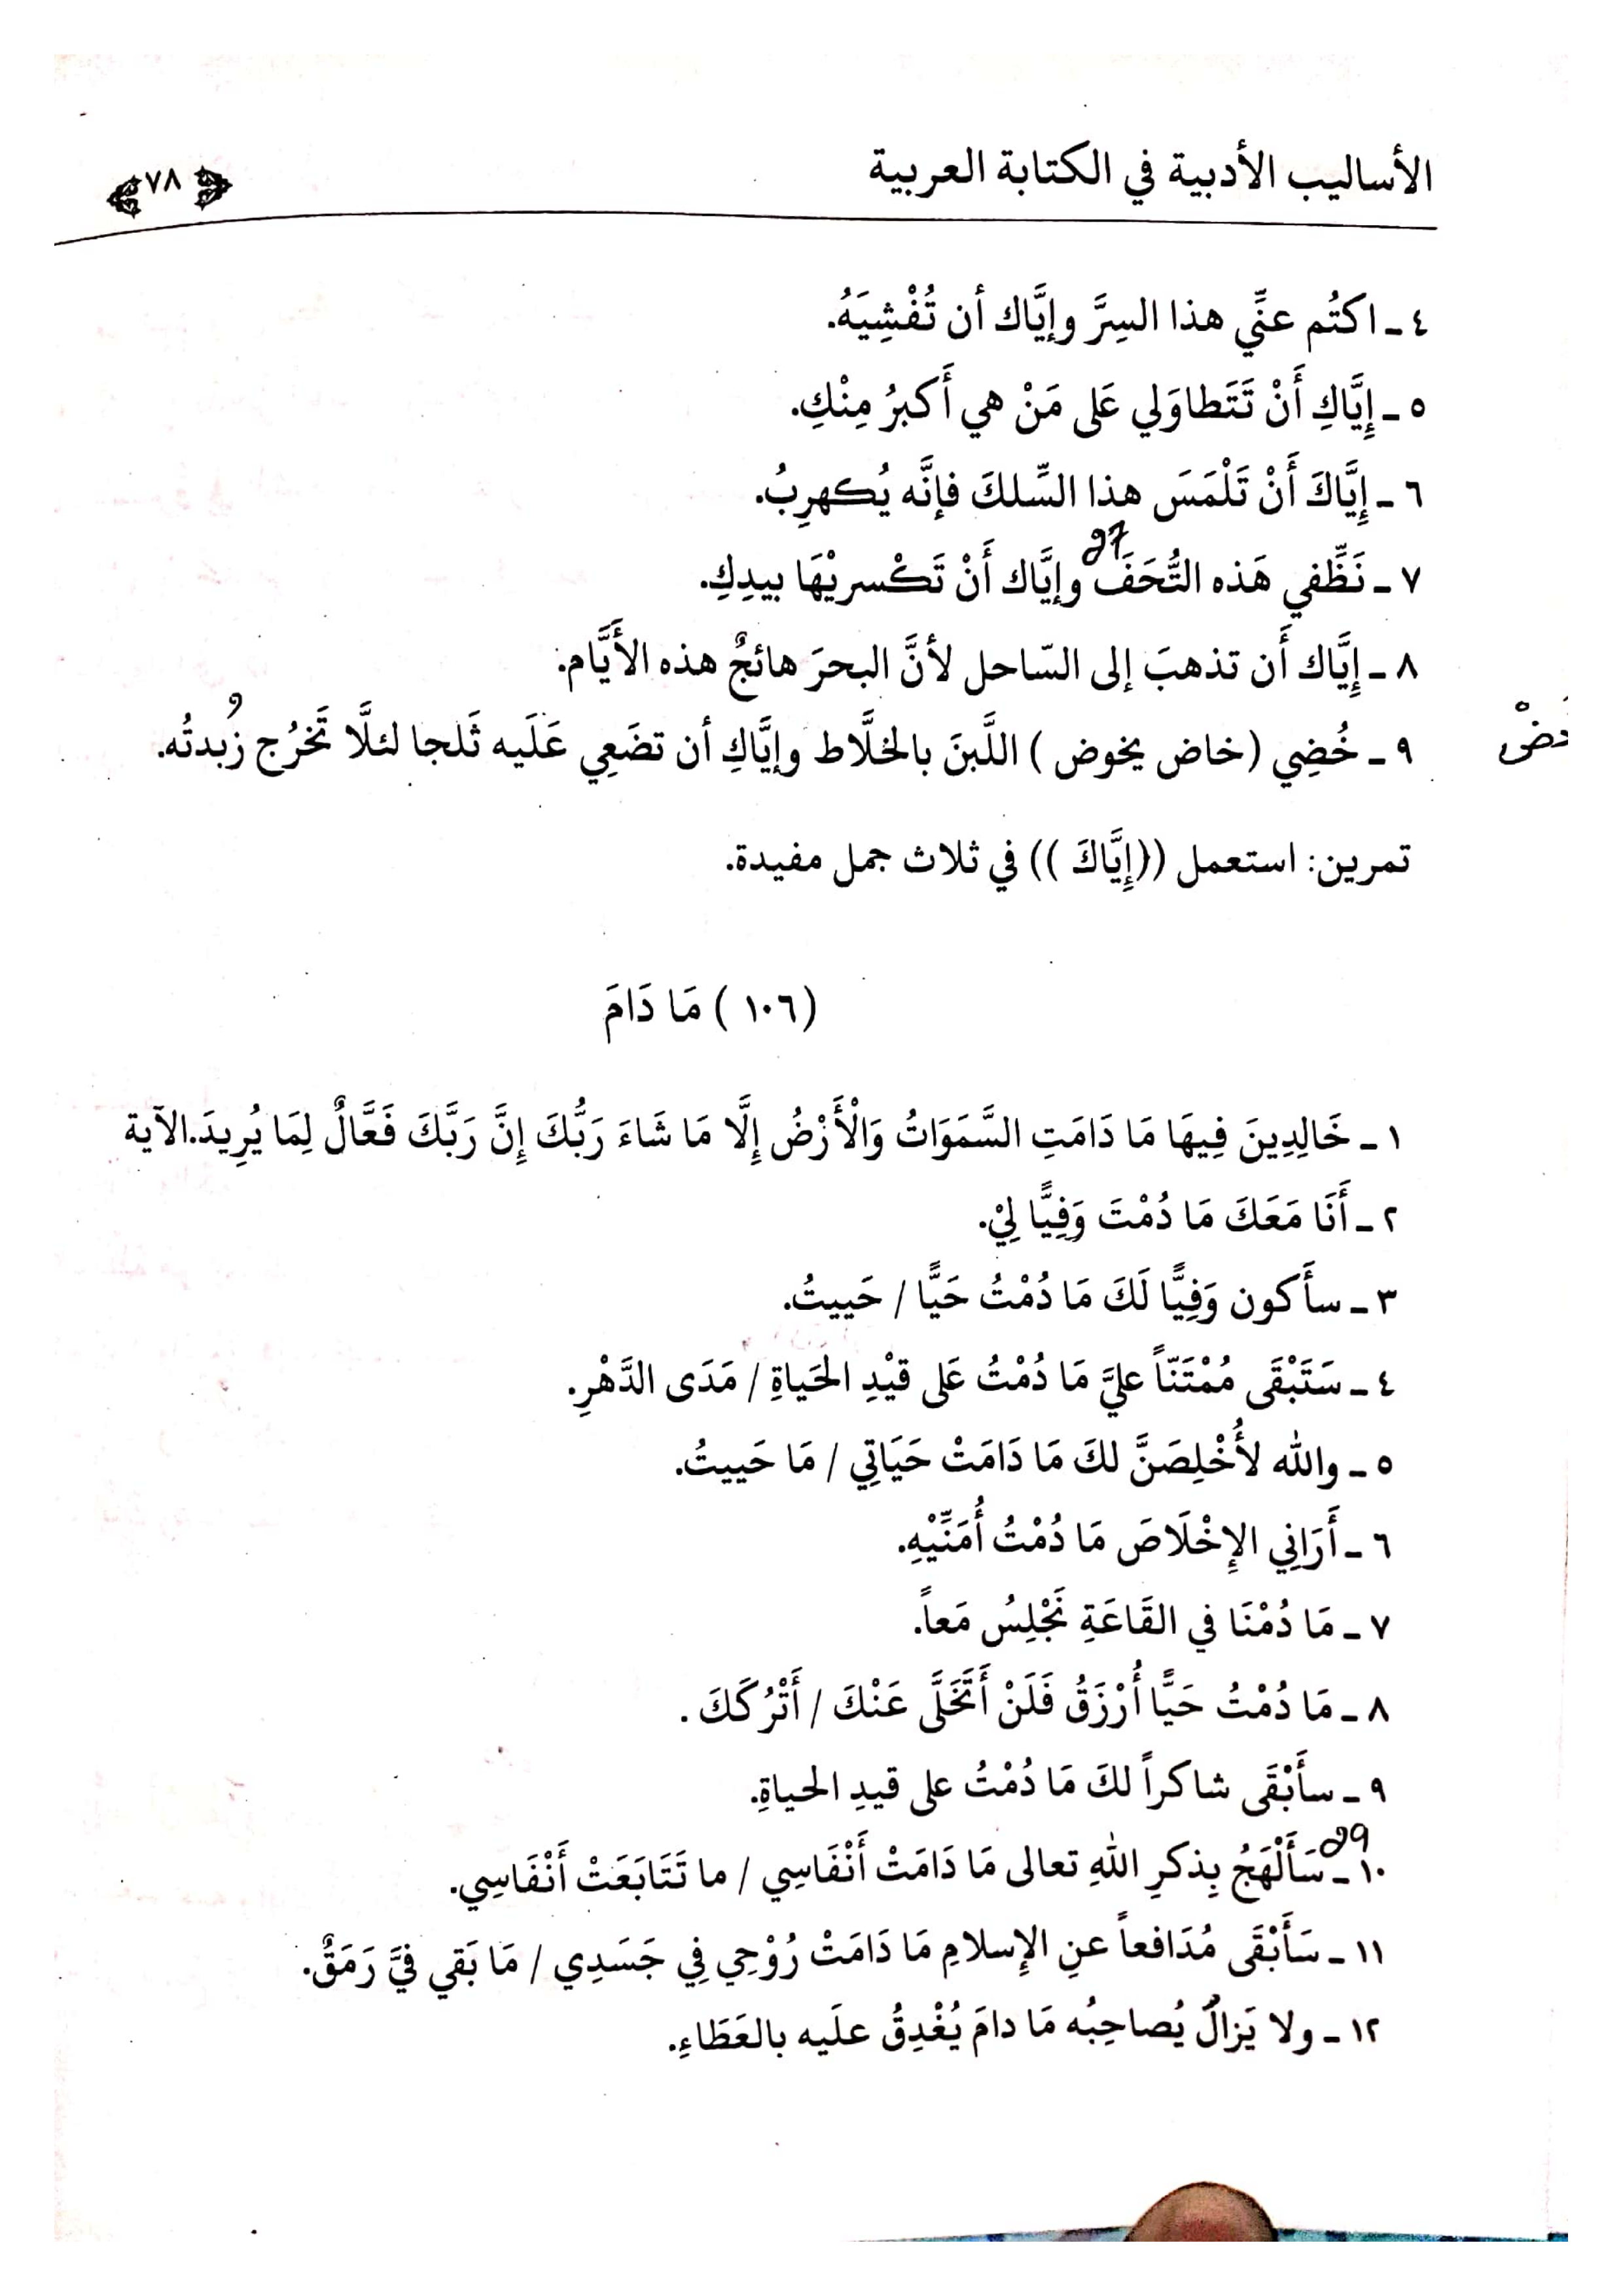 الأساليب الأدبية في الكتابة العربية ٧٨
٤ ـ اكتُم عنِّي هذا السِرَّ وإيَّاك أن تُفْشِيَهُ.
٥ ـ إِيَّاكِ أَنْ تَتَطاوَلي عَلى مَنْ هي أَكبرُ مِنْكِ.
٦ ـ إِيَّاكَ أَنْ تَلْمَسَ هذا السِّلكَ فإنَّه يُكهرِبُ.
٧ ـ نَظِّفي هَذه التُّحَفَ وإيَّاك أَنْ تَكْسريْهَا بيدِكِ.
٨ ـ إِيَّاك أَن تذهبَ إلى السّاحل لأنَّ البحرَ هائجٌ هذه الأَيَّام.
٩ ـ خُضِي (خاض يخوض ) اللَّبنَ بالخلَّاط وإيَّاكِ أن تضَعِي عَلَيه ثَلجا لئلَّا تَخرُج زُبدتُه.
تمرين: استعمل ((إِيَّاكَ )) في ثلاث جمل مفيدة.
(١٠٦ ) مَا دَامَ
١ ـ خَالِدِينَ فِيهَا مَا دَامَتِ السَّمَوَاتُ وَالْأَرْضُ إِلَّا مَا شَاءَ رَبُّكَ إِنَّ رَبَّكَ فَعَّالٌ لِمَا يُرِيدَ.الآية
٢ ـ أَنَا مَعَكَ مَا دُمْتَ وَفِيًّا لِيْ.
٣ ـ سأَكون وَفِيًّا لَكَ مَا دُمْتُ حَيًّا / حَييتُ.
٤ ـ سَتَبْقَى مُمْتَنّاً عليَّ مَا دُمْتُ عَلى قيْدِ الحَياةِ / مَدَى الدَّهْرِ.
٥ ـ والله لأُخْلِصَنَّ لكَ مَا دَامَتْ حَيَاتِي / مَا حَييتُ.
٦ ـ أَرَانِي الإِخْلَاصَ مَا دُمْتُ أُمَنِّيْهِ.
٧ ـ مَا دُمْنَا في القَاعَةِ نَجْلِسُ مَعاً.
٨ ـ مَا دُمْتُ حَيًّا أُرْزَقُ فَلَنْ أَتَخَلَّى عَنْكَ / أَتْرُكَكَ .
٩ ـ سأَبْقَى شاكراً لكَ مَا دُمْتُ على قيدِ الحياةِ.
١٠ ـ سَأَلْهَجُ بِذكرِ اللهِ تعالى مَا دَامَتْ أَنْفَاسِي / ما تَتَابَعَتْ أَنْفَاسِي.
١١ ـ سَأَبْقَى مُدَافعاً عنِ الإِسلامِ مَا دَامَتْ رُوْحِي فِي جَسَدِي / مَا بَقي فيَّ رَمَقٌ.
١٢ ـ ولا يَزالُ يُصاحِبُه مَا دامَ يُغْدِقُ علَيه بالعَطَاءِ.